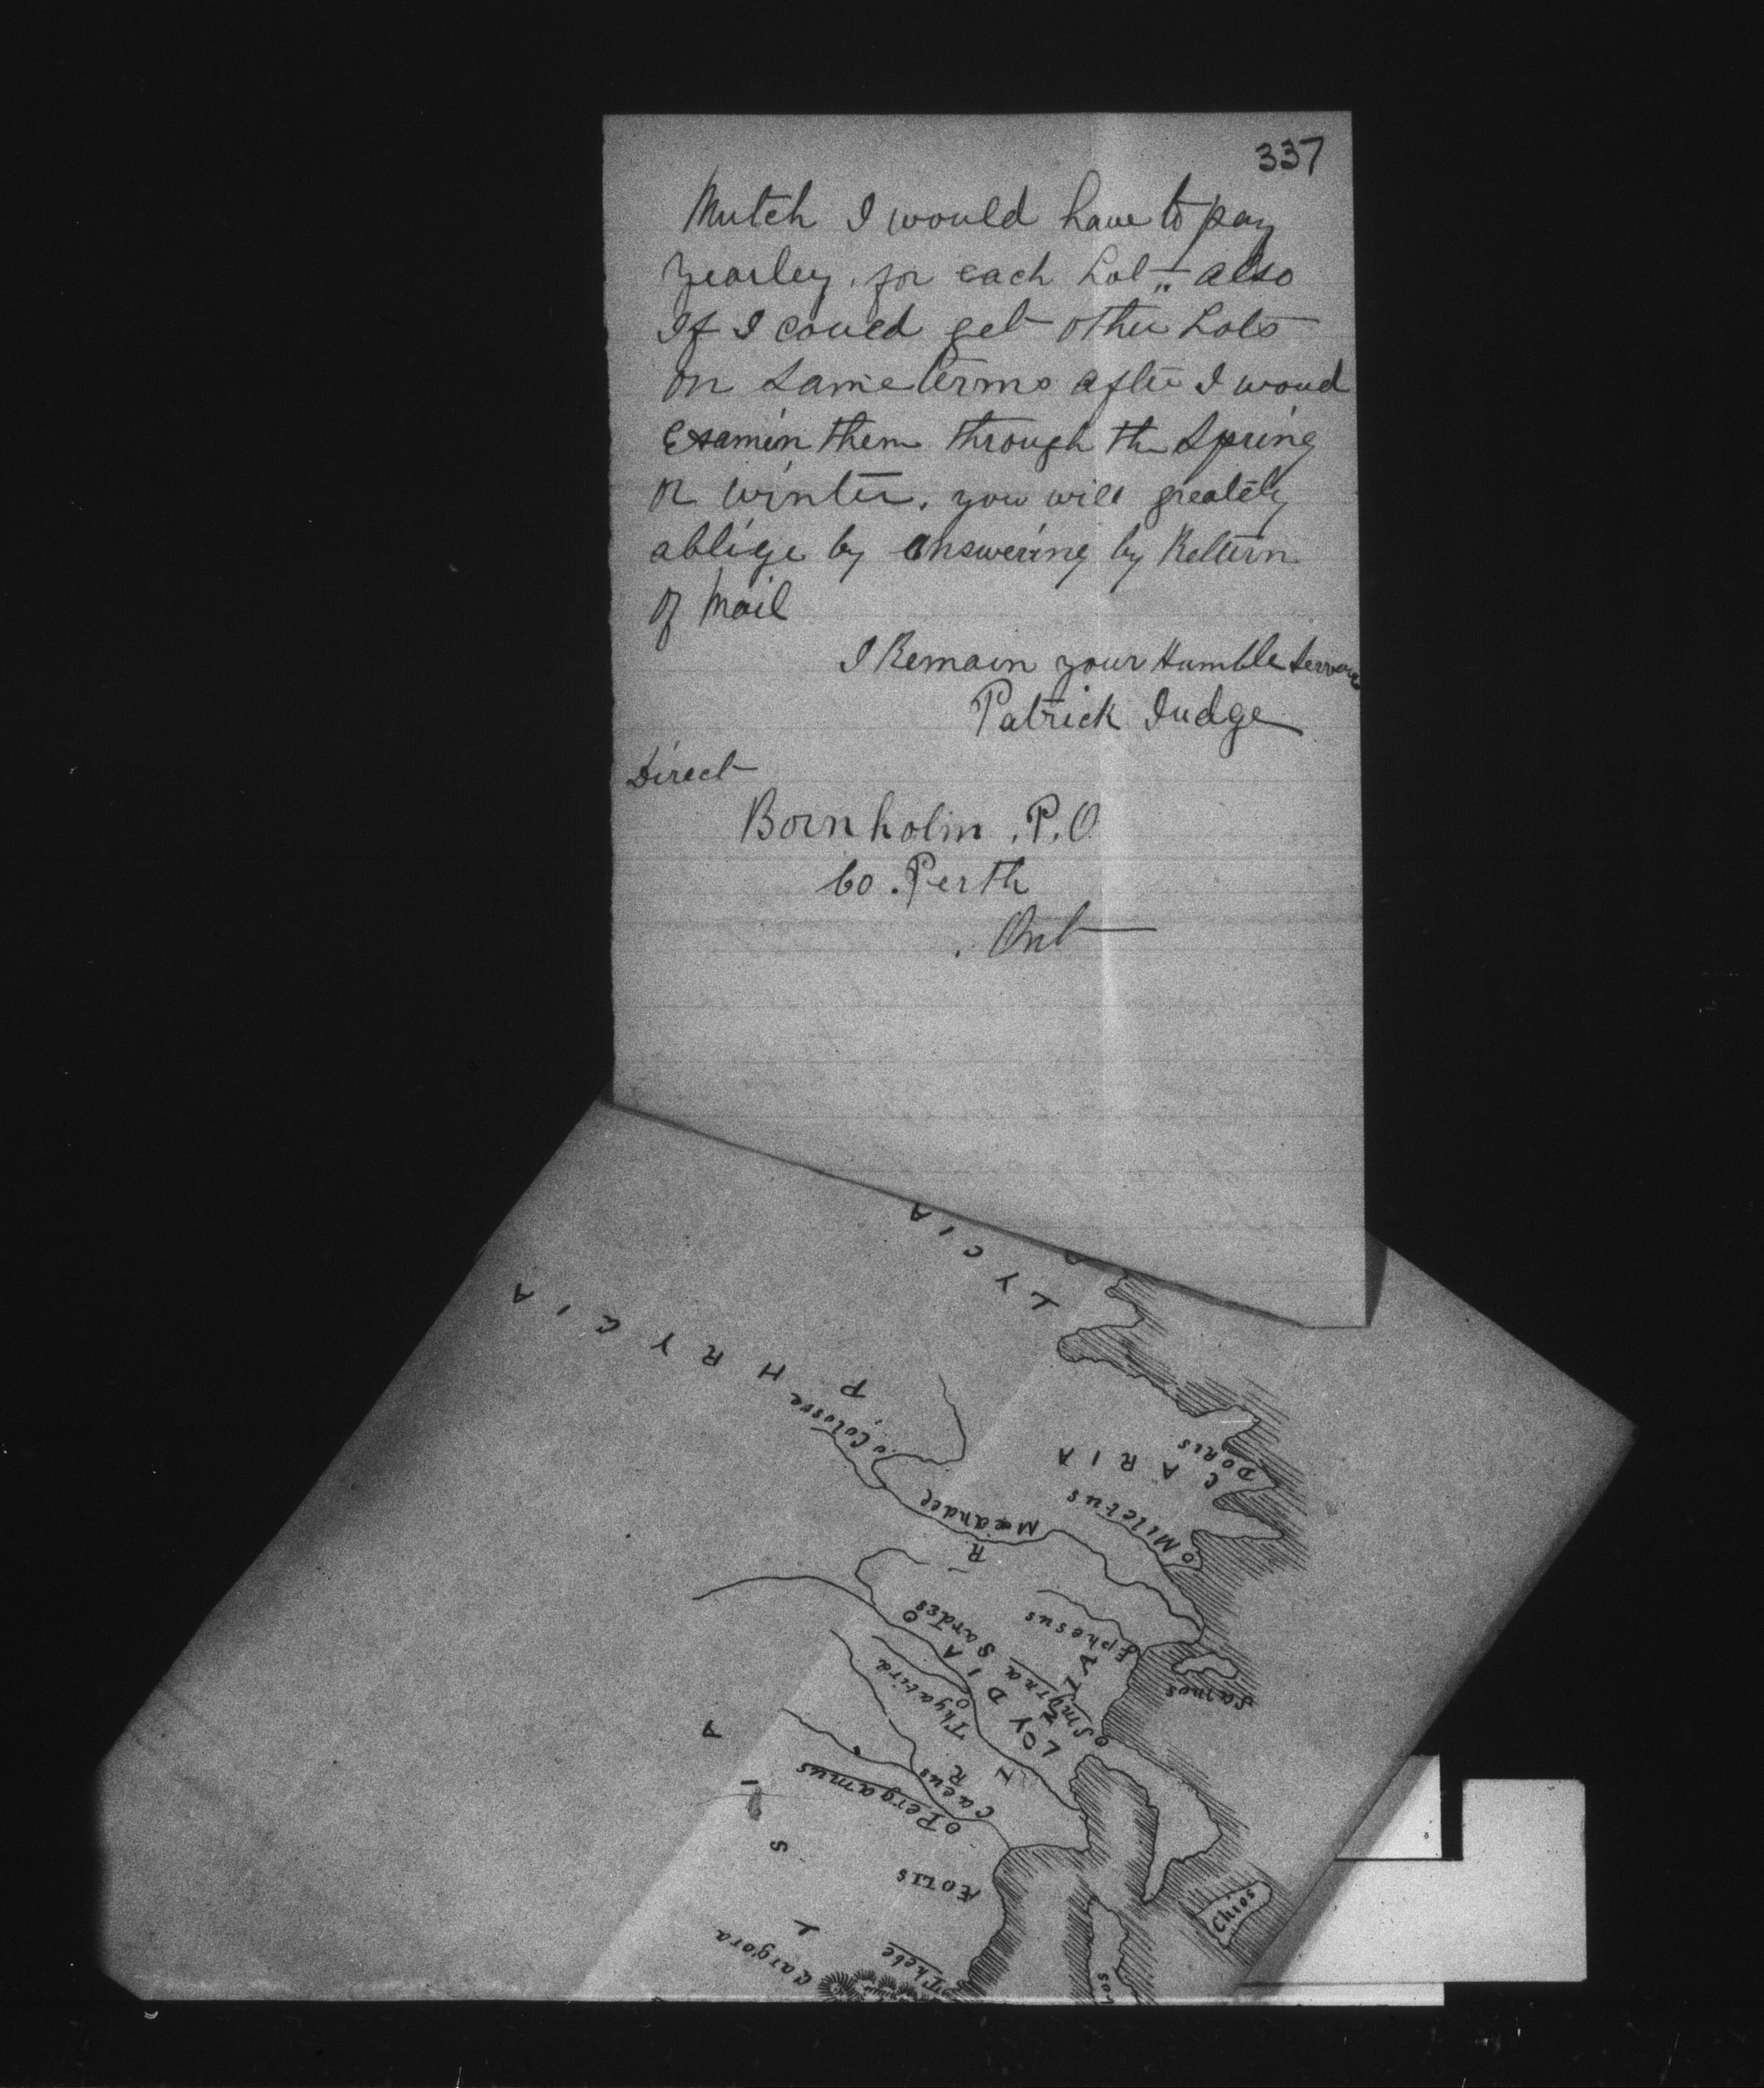 337
Mutch I would have to pay
yearley, for each Lot „ also
If I coued get other Lots
on same terms after I woud
Examin them through the Spring
or winter. you will greately
ablige by answering by Retturn
of Mail
I Remain your Humble
Patrick Judge
Direct
Bornholm. P.O
Co. Perth
Ont
LYCIA
PHRYGIA
Colosse
CARIA
DORIS
Miletus
R Meander
Sardes
Ephesus
Samos
LYDIA
Smyrna
Thyatira
R
Caeus
Pergamus
ÆOLIS
Chios
Thebe
Gargora